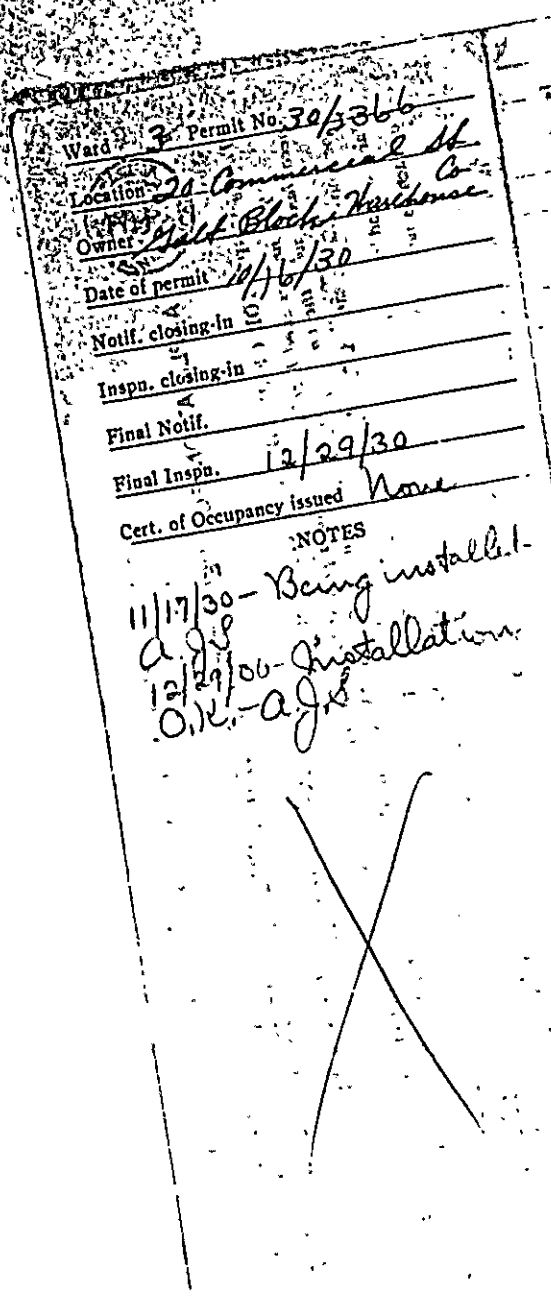 Ward 3 Permit No. 30/3366
Location 20 Commercial St.
Owner Galt Block Warehouse Co.
Date of permit 10/16/30
Notif. closing-in
Inspn. closing-in
Final Notif.
Final Inspn. 12/29/30
Cert. of Occupancy issued None
NOTES
11/17/30 - Being installed.
A.J.S
12/29/30 - Installation
O.K. - A.J.S.